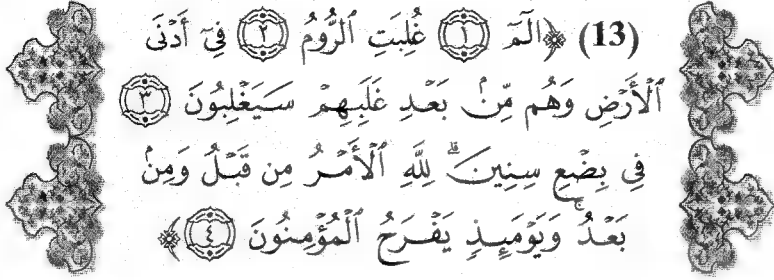 (13) ﴿الٓمٓ ۝١ غُلِبَتِ ٱلرُّومُ ۝٢ فِىٓ أَدْنَى
ٱلْأَرْضِ وَهُم مِّنۢ بَعْدِ غَلَبِهِمْ سَيَغْلِبُونَ ۝٣
فِى بِضْعِ سِنِينَ ۗ لِلَّهِ ٱلْأَمْرُ مِن قَبْلُ وَمِنۢ
بَعْدُ ۚ وَيَوْمَئِذٍ يَفْرَحُ ٱلْمُؤْمِنُونَ ۝٤﴾